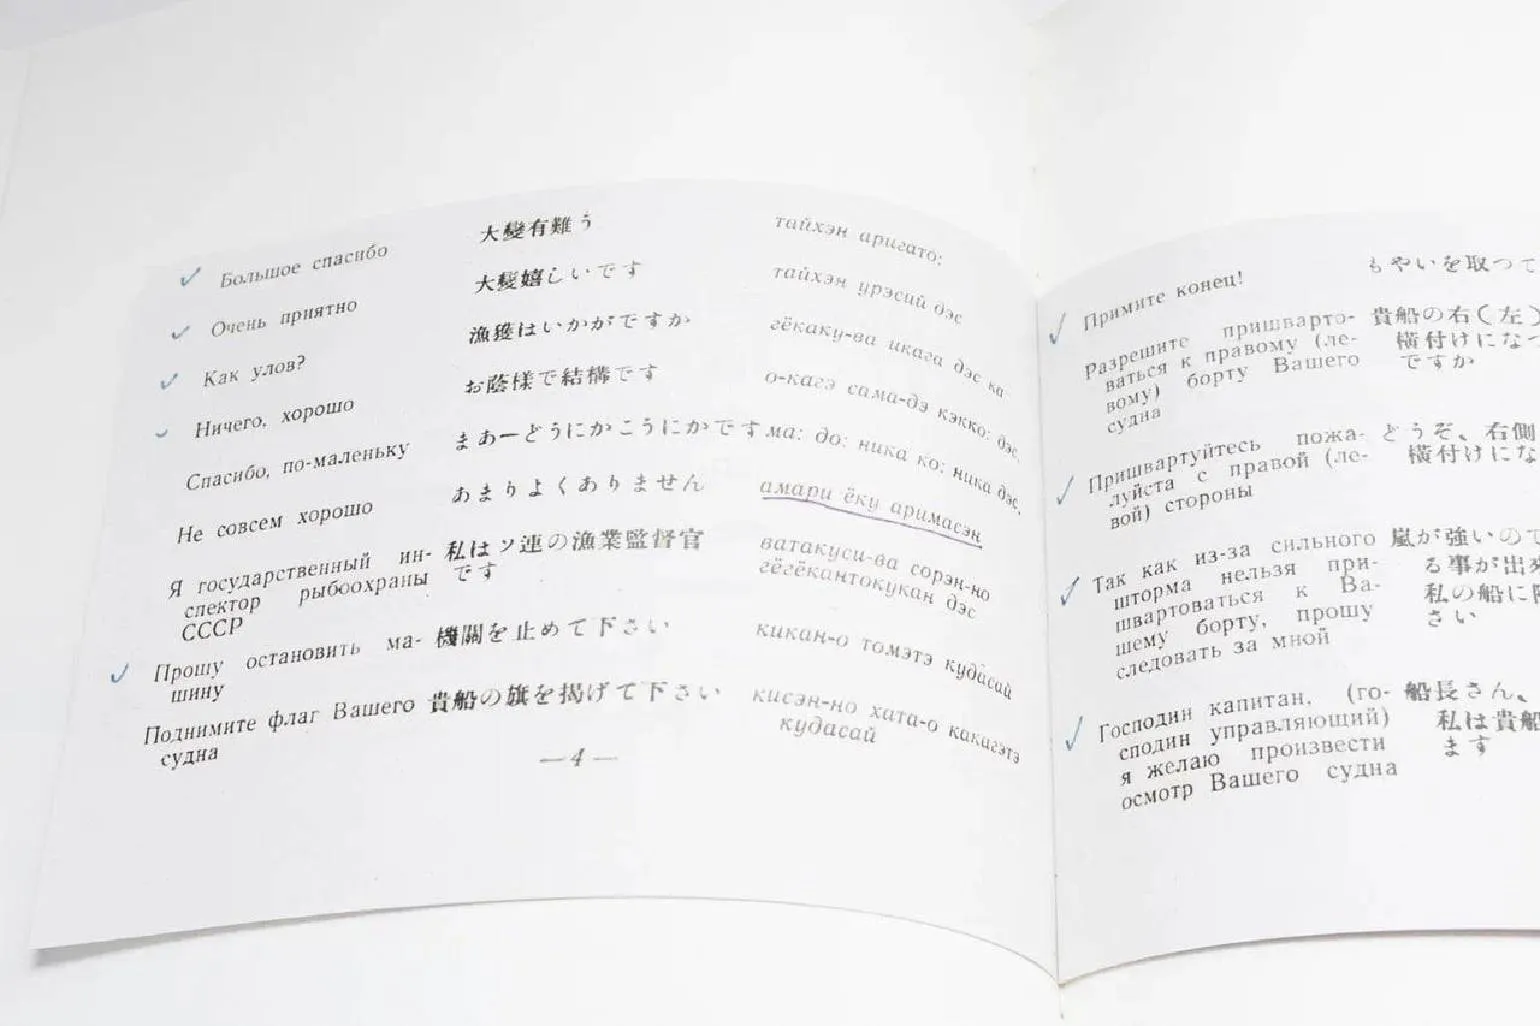 Большое спасибо 大變有難う тайхэн аригато:
Очень приятно 大變嬉しいです тайхэн урэсий дэс
Как улов? 漁獲はいかがですか гёкаку-ва икага дэс ка
Ничего, хорошо お蔭様で結構です о-кагэ сама-дэ кэкко: дэс.
Спасибо, по-маленьку まあーどうにかこうにかです ма: до: ника ко: ника дэс.
Не совсем хорошо あまりよくありません амари ёку аримасэн
Я государственный ин- 私はソ連の漁業監督官 ватакуси-ва сорэн-но
спектор рыбоохраны です гёгёкантокукан дэс
СССР
Прошу остановить ма- 機關を止めて下さい кикан-о томэтэ кудасай
шину
Поднимите флаг Вашего 貴船の旗を揭げて下さい кисэн-но хата-о какигэтэ
судна кудасай
— 4 —
Примите конец! もやいを取つて
Разрешите пришварто- 貴船の右く左)
ваться к правому (ле- 橫付けになつ
вому) борту Вашего ですか
судна
Пришвартуйтесь пожа- どうぞ、右側
луйста с правой (ле- 橫付けにな
вой) стороны
Так как из-за сильного 嵐が強いので
шторма нельзя при- る事が出来
швартоваться к Ва- 私の船に
шему борту, прошу さい
следовать за мной
Господин капитан, (го- 船長さん、
сподин управляющий) 私は貴船
я желаю произвести ます
осмотр Вашего судна